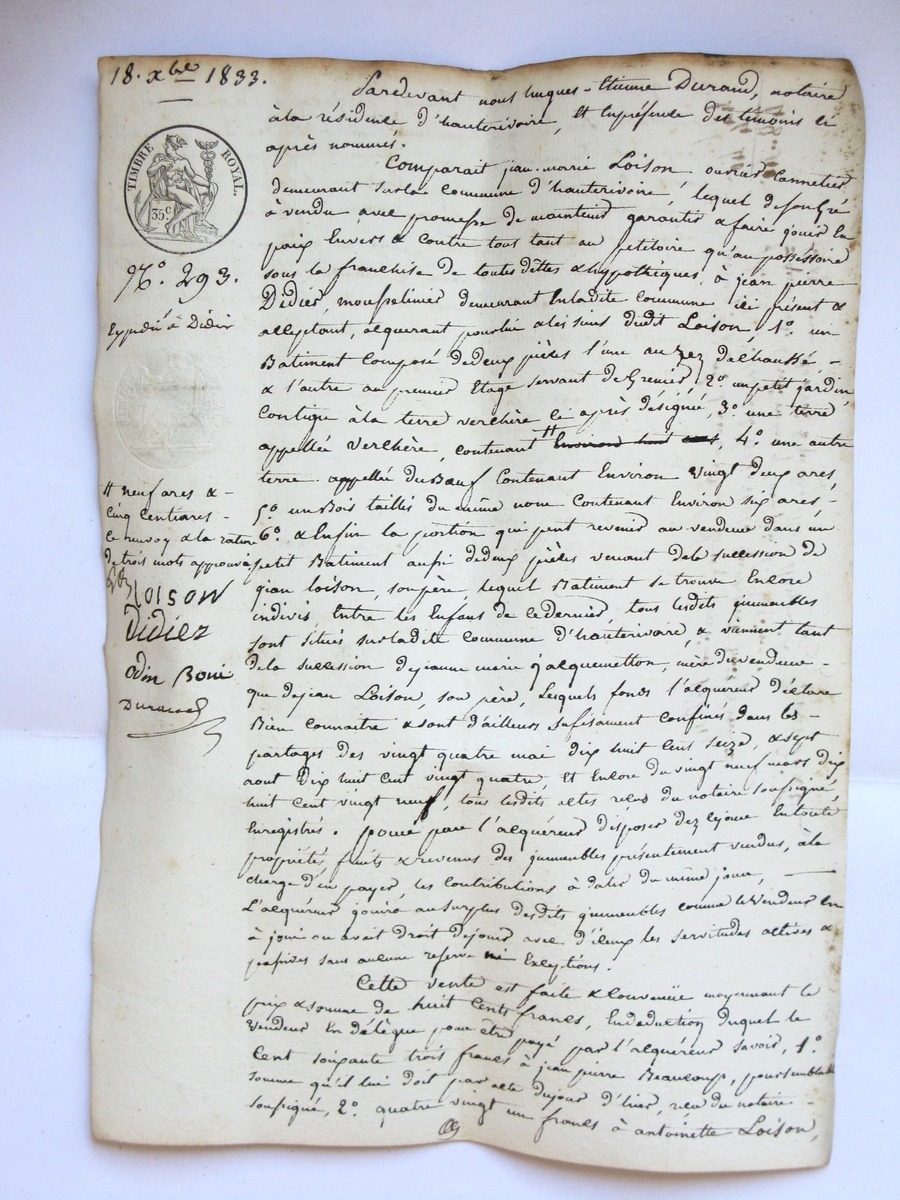 18. xbre 1833.
TIMBRE ROYAL
35c
N.º 293.
Expédié à Didier
Pardevant nous hugues-Etienne Durand, notaire
à la résidence d'hauterivoire, Et En présence des témoins ci
après nommés.
Comparait jean-marie Loison ouvrier
demeurant sur la Commune d'hauterivoire, lequel de son Gré
à vendu avec promesse de maintenir garantir & faire jouir En
paix Envers & Contre tous tant au petitoire qu'au posséssoire
sous la franchise de toutes dêttes & hypothèques, à jean pierre
Didier, demeurant En ladite Commune ici présent &
acceptant, acquerant pour lui & les siens dudit Loison, 1º. un
Batiment Composé de deux pièces l'une au Rez de Chaussé -
& l'autre au premier Etage servant de Grenier, 2º. un petit jardin
Contigu à la terre verchère ci après désignée, 3º. une terre
appellée Verchère, contenant # Environ huit ares, 4º. une autre
terre appellée du Bœuf Contenant Environ vingt deux ares,
5º. un Bois taillis du même nom Contenant Environ six ares -
6º. & Enfin la portion qui peut revenir au vendeur dans un
petit Batiment aussi de deux pièces venant de la succession de
jean loison, son père, lequel Batiment se trouve Encore
indivis, Entre les Enfans de ce dernier, tous lesdits immeubles
sont situés sur ladite Commune d'hauterivoire, & viennent tant
de la succession de jeanne marie jacquemetton, mère du vendeur -
que de jean Loison, son père, Lesquels fonds l'acquéreur déclare
Bien connaitre & sont d'ailleurs sufisament confinés dans les -
partages des vingt quatre mai dix huit cent seize, & sept
aout Dix huit cent vingt quatre, Et Encore du vingt neuf mars dix
huit cent vingt neuf, tous lesdits actes reçus du notaire soussigné,
Enregistrés. pour par l'acquéreur disposer dez ce jour En toute
propriétés, fruits & revenus des immeubles présentement vendus, à la
charge d'en payer, les Contributions à dater du même jour,
L'acquéreur jouira au surplus desdits immeubles comme le Vendeur En
à joui ou avait Droit de jouir avec d'iceux les servitudes actives &
passives sans aucune reserve ni Exceptions.
Cette vente est faite & Convenüe moyennant le
prix & somme de huit Cents francs, En déduction duquel le
Vendeur En délègue pour être payé par l'acquéreur savoir, 1º.
Cent soixante trois francs à jean pierre Beaucoup, pour semblable
somme qu'il lui doit par acte du jour d'hier, reçu du notaire -
soussigné, 2º. quatre vingt un francs à antoinette Loison,
# neuf ares & -
Cinq Centiares -
Ce renvoy & la rature
de trois mots approuvés
LOISON
Didiez
Odin
Durand